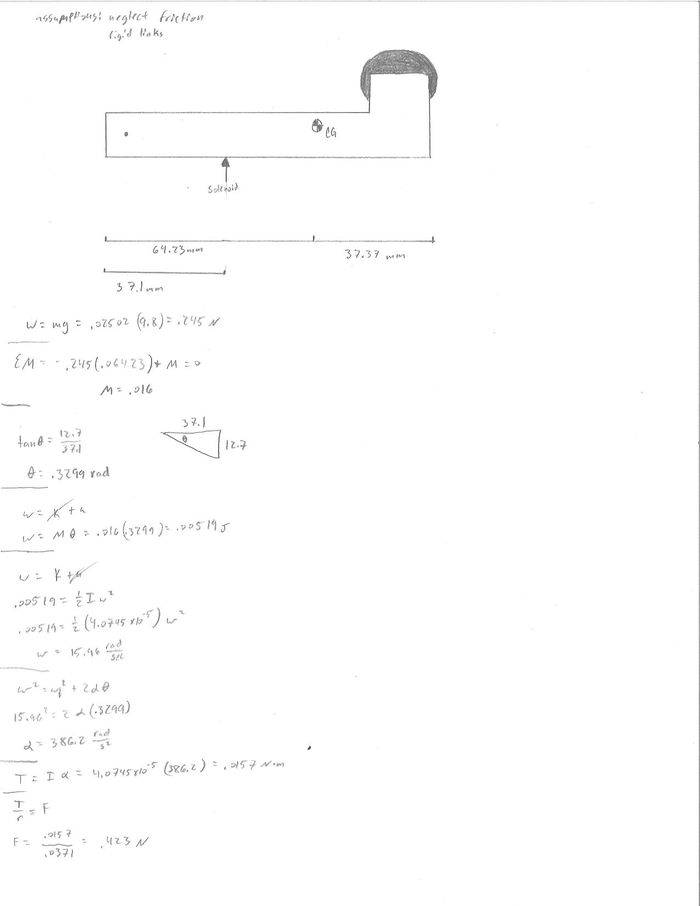 assumptions: neglect friction
rigid links
CG
Solenoid
64.23mm
37.37 mm
37.1mm
W = mg = .02502 (9.8) = .245 N
ΣM = -.245(.06423) + M = 0
M = .016
tanθ = 12.7/37.1
37.1
θ
12.7
θ = .3299 rad
w = K + u
w = Mθ = .016(.3299) = .00519 J
u = K + u
.00519 = 1/2 I w²
.00519 = 1/2 (4.0745 x10⁻⁵) w²
w = 15.96 rad/sec
w² = w₀² + 2αθ
15.96² = 2 α(.3299)
α = 386.2 rad/s²
T = I α = 4.0745x10⁻⁵ (386.2) = .0157 N·m
T/r = F
F = .0157/.0371 = .423 N